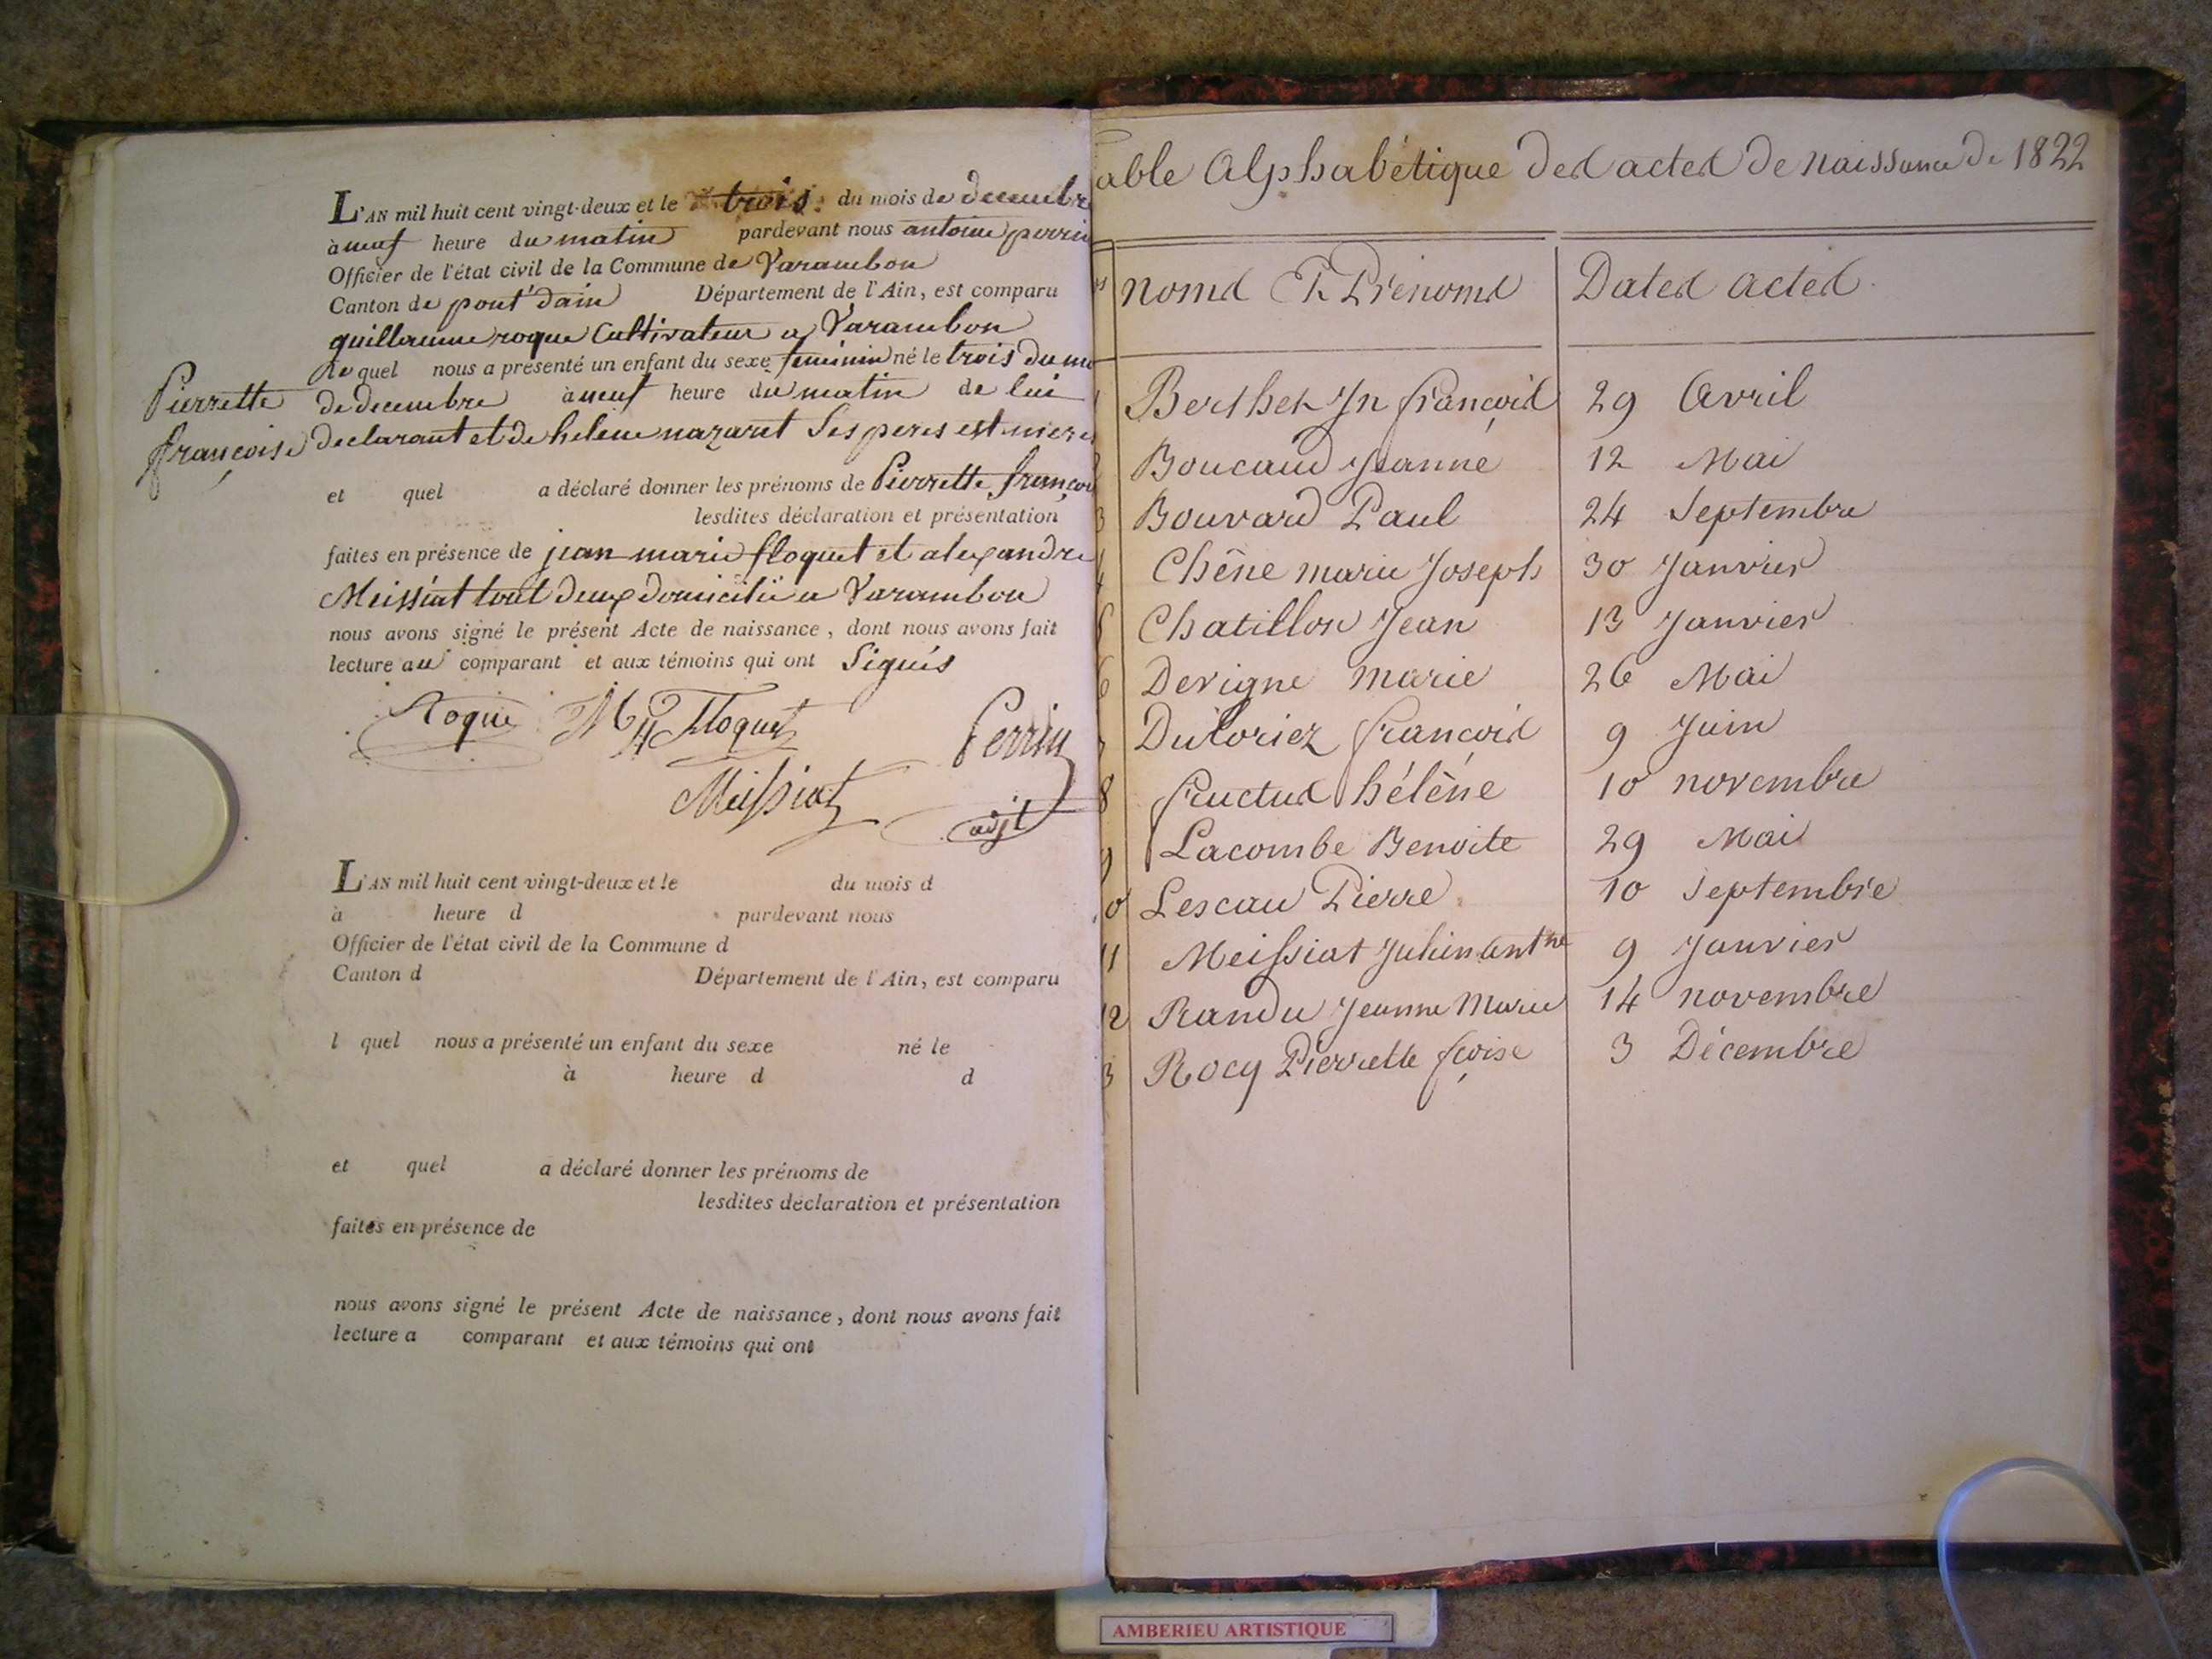 L'AN mil huit cent vingt-deux et le trois du mois de decembre
à neuf heure du matin pardevant nous antoine perrin
Officier de l'état civil de la Commune de Varambon
Canton de pont d'ain Département de l'Ain, est comparu
guillaume roque Cultivateur a Varambon
le quel nous a présenté un enfant du sexe feminin né le trois du mo
Pierrette
de decembre à neuf heure du matin de lui
françoise
declarant et de helene nazaret Ses peres est mere
et quel a déclaré donner les prénoms de Pierrette françoi
lesdites déclaration et présentation
faites en présence de jean marie floquet et alexandre
Meissiat tout deux domicilié a Varambon
nous avons signé le présent Acte de naissance, dont nous avons fait
lecture au comparant et aux témoins qui ont Signés
Roque Floquet Perrin
Meissiat adjt
L'AN mil huit cent vingt-deux et le du mois d
à heure d pardevant nous
Officier de l'état civil de la Commune d
Canton d Département de l'Ain, est comparu
l quel nous a présenté un enfant du sexe né le
à heure d d
et quel a déclaré donner les prénoms de
lesdites déclaration et présentation
faites en présence de
nous avons signé le présent Acte de naissance, dont nous avons fait
lecture a comparant et aux témoins qui ont
able Alphabétique des actes de naissance de 1822
noms Et Prénoms Dates actes
Berthet Jn françois 29 Avril
Boucaud Jeanne 12 Mai
3 Bouvard Paul 24 Septembre
4 Chêne marie Joseph 30 Janvier
5 Chatillon Jean 13 Janvier
6 Devigne marie 26 Mai
Duloriez françois 9 Juin
8 fructus hélène 10 novembre
9 Lacombe Benoite 29 Mai
0 Lescau Pierre 10 Septembre
11 Meissiat Julien antne 9 Janvier
12 Randu Jeanne Marie 14 novembre
3 Rocq Pierrette fçoise 3 Décembre
AMBERIEU ARTISTIQUE